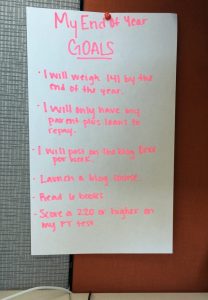 My End of Year
GOALS
· I will weigh 141 by the
end of the year.
· I will only have my
parent plus loans to
repay.
· I will post on the blog
per week.
· Launch a blog course.
· Read 6 books
- Score a 220 or higher on
my PT test